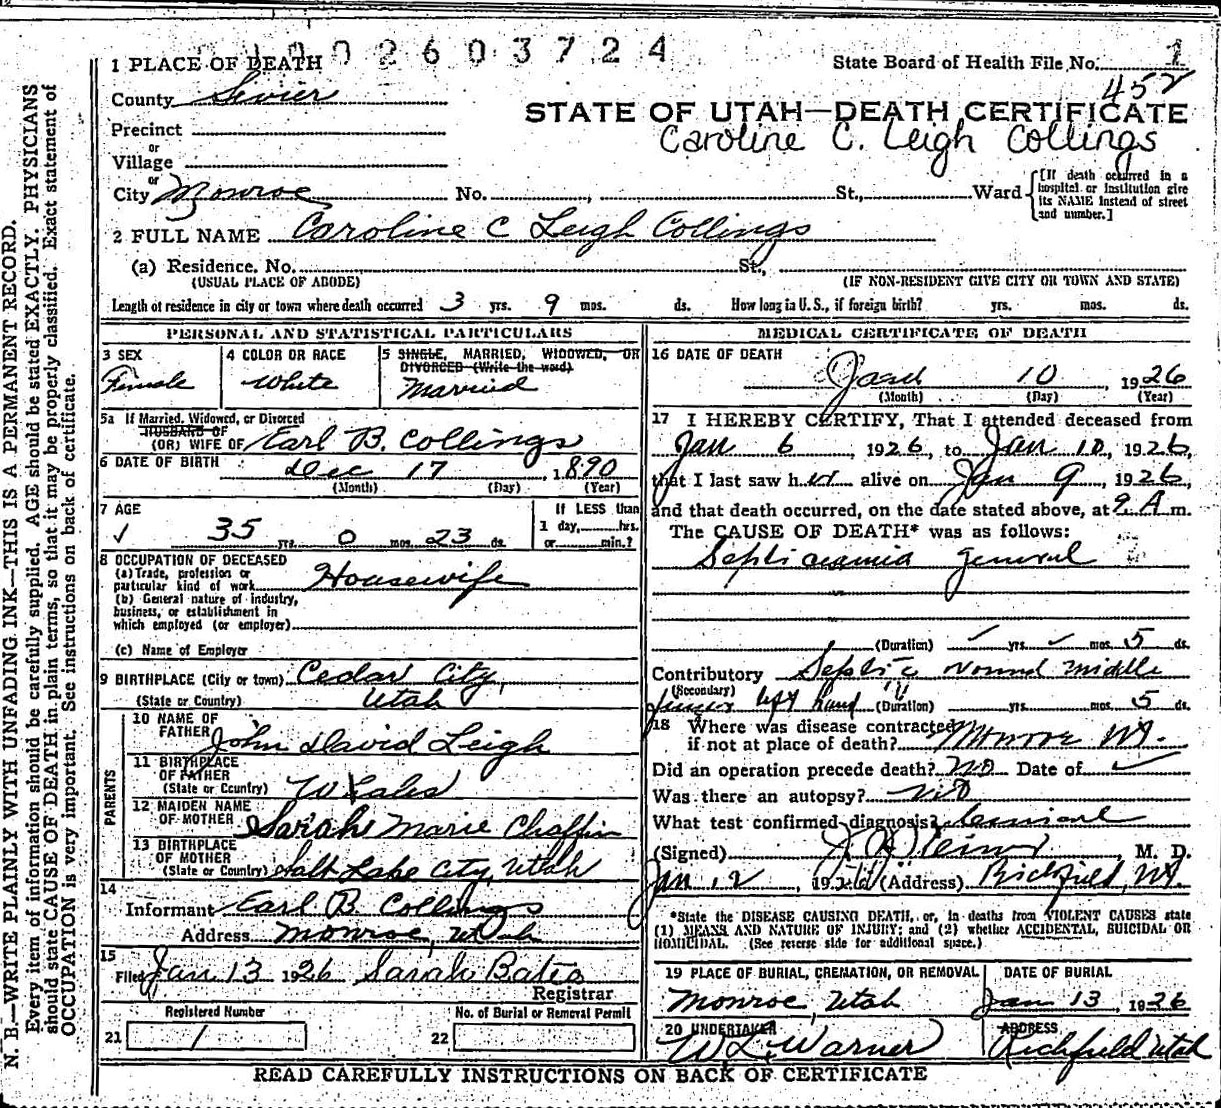 1002603724
1 PLACE OF DEATH
State Board of Health File No. 1
County Sevier
452
STATE OF UTAH—DEATH CERTIFICATE
Precinct
Caroline C. Leigh Collings
or
Village
or
City Monroe No. , St., Ward
[If death occurred in a hospital or institution give its NAME instead of street and number.]
2 FULL NAME Caroline C Leigh Collings
(a) Residence. No. St.,
(USUAL PLACE OF ABODE) (IF NON-RESIDENT GIVE CITY OR TOWN AND STATE)
Length of residence in city or town where death occurred 3 yrs. 9 mos. ds. How long in U.S., if foreign birth? yrs. mos. ds.
PERSONAL AND STATISTICAL PARTICULARS
3 SEX
Female
4 COLOR OR RACE
White
5 SINGLE, MARRIED, WIDOWED, OR
DIVORCED (Write the word)
Married
5a If Married, Widowed, or Divorced
HUSBAND OF
(OR) WIFE OF Earl B. Collings
6 DATE OF BIRTH Dec 17, 1890
(Month) (Day) (Year)
7 AGE
35 yrs. 0 mos. 23 ds.
If LESS than
1 day, hrs.
or min.?
8 OCCUPATION OF DECEASED
(a) Trade, profession or
particular kind of work Housewife
(b) General nature of industry,
business, or establishment in
which employed (or employer)
(c) Name of Employer
9 BIRTHPLACE (City or town) Cedar City,
(State or Country) Utah
PARENTS
10 NAME OF
FATHER John David Leigh
11 BIRTHPLACE
OF FATHER
(State or Country) Wales
12 MAIDEN NAME
OF MOTHER Sarah Marie Chaffin
13 BIRTHPLACE
OF MOTHER
(State or Country) Salt Lake City, Utah
14
Informant Earl B. Collings
Address Monroe, Utah
15
Filed Jan 13 1926 Sarah Bates
Registrar
Registered Number
21 1
No. of Burial or Removal Permit
22
MEDICAL CERTIFICATE OF DEATH
16 DATE OF DEATH
10, 1926
(Month) (Day) (Year)
17 I HEREBY CERTIFY, That I attended deceased from
Jan 6, 1926, to Jan 10, 1926,
that I last saw her alive on Jan 9, 1926,
and that death occurred, on the date stated above, at 9 A m.
The CAUSE OF DEATH* was as follows:
Septicaemia general
(Duration) yrs. mos. 5 ds.
Contributory Septic wound middle
(Secondary) finger left hand (Duration) yrs. mos. 5 ds.
18 Where was disease contracted
if not at place of death? Monroe Ut.
Did an operation precede death? No Date of
Was there an autopsy? no
What test confirmed diagnosis?
(Signed) M. D.
Jan 12, 1926 (Address) Richfield, Ut.
*State the DISEASE CAUSING DEATH, or, in deaths from VIOLENT CAUSES state
(1) MEANS AND NATURE OF INJURY; and (2) whether ACCIDENTAL, SUICIDAL OR
HOMICIDAL. (See reverse side for additional space.)
19 PLACE OF BURIAL, CREMATION, OR REMOVAL
Monroe, Utah
DATE OF BURIAL
Jan 13 1926
20 UNDERTAKER
W L Warner
ADDRESS
Richfield Utah
READ CAREFULLY INSTRUCTIONS ON BACK OF CERTIFICATE
N. B.—WRITE PLAINLY WITH UNFADING INK—THIS IS A PERMANENT RECORD.
Every item of information should be carefully supplied. AGE should be stated EXACTLY. PHYSICIANS
should state CAUSE OF DEATH in plain terms, so that it may be properly classified. Exact statement of
OCCUPATION is very important. See instructions on back of certificate.